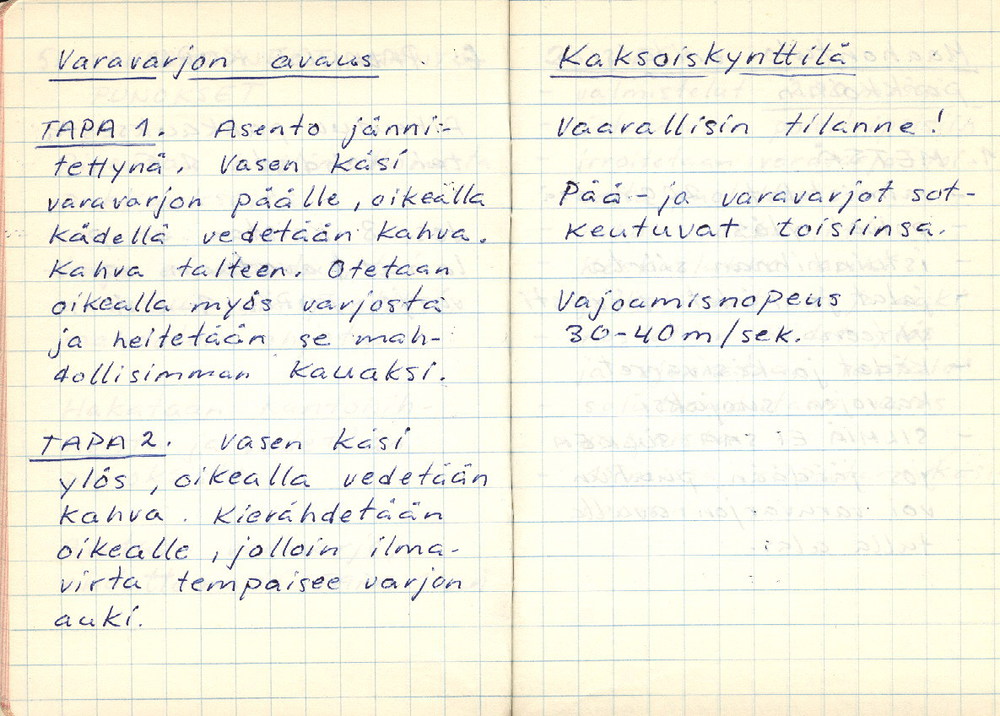 Varavarjon avaus
TAPA 1. Asento jänni-
tettynä. Vasen käsi
varavarjon päälle, oikealla
kädellä vedetään kahva.
Kahva talteen. Otetaan
oikealla myös varjosta
ja heitetään se mah-
dollisimman kauaksi.
TAPA 2. Vasen käsi
ylös, oikealla vedetään
kahva. Kierähdetään
oikealle, jolloin ilma-
virta tempaisee varjon
auki.
Kaksoiskynttilä
Vaarallisin tilanne!
Pää- ja varavarjot sot-
keutuvat toisiinsa.
Vajoamisnopeus
30-40 m/sek.